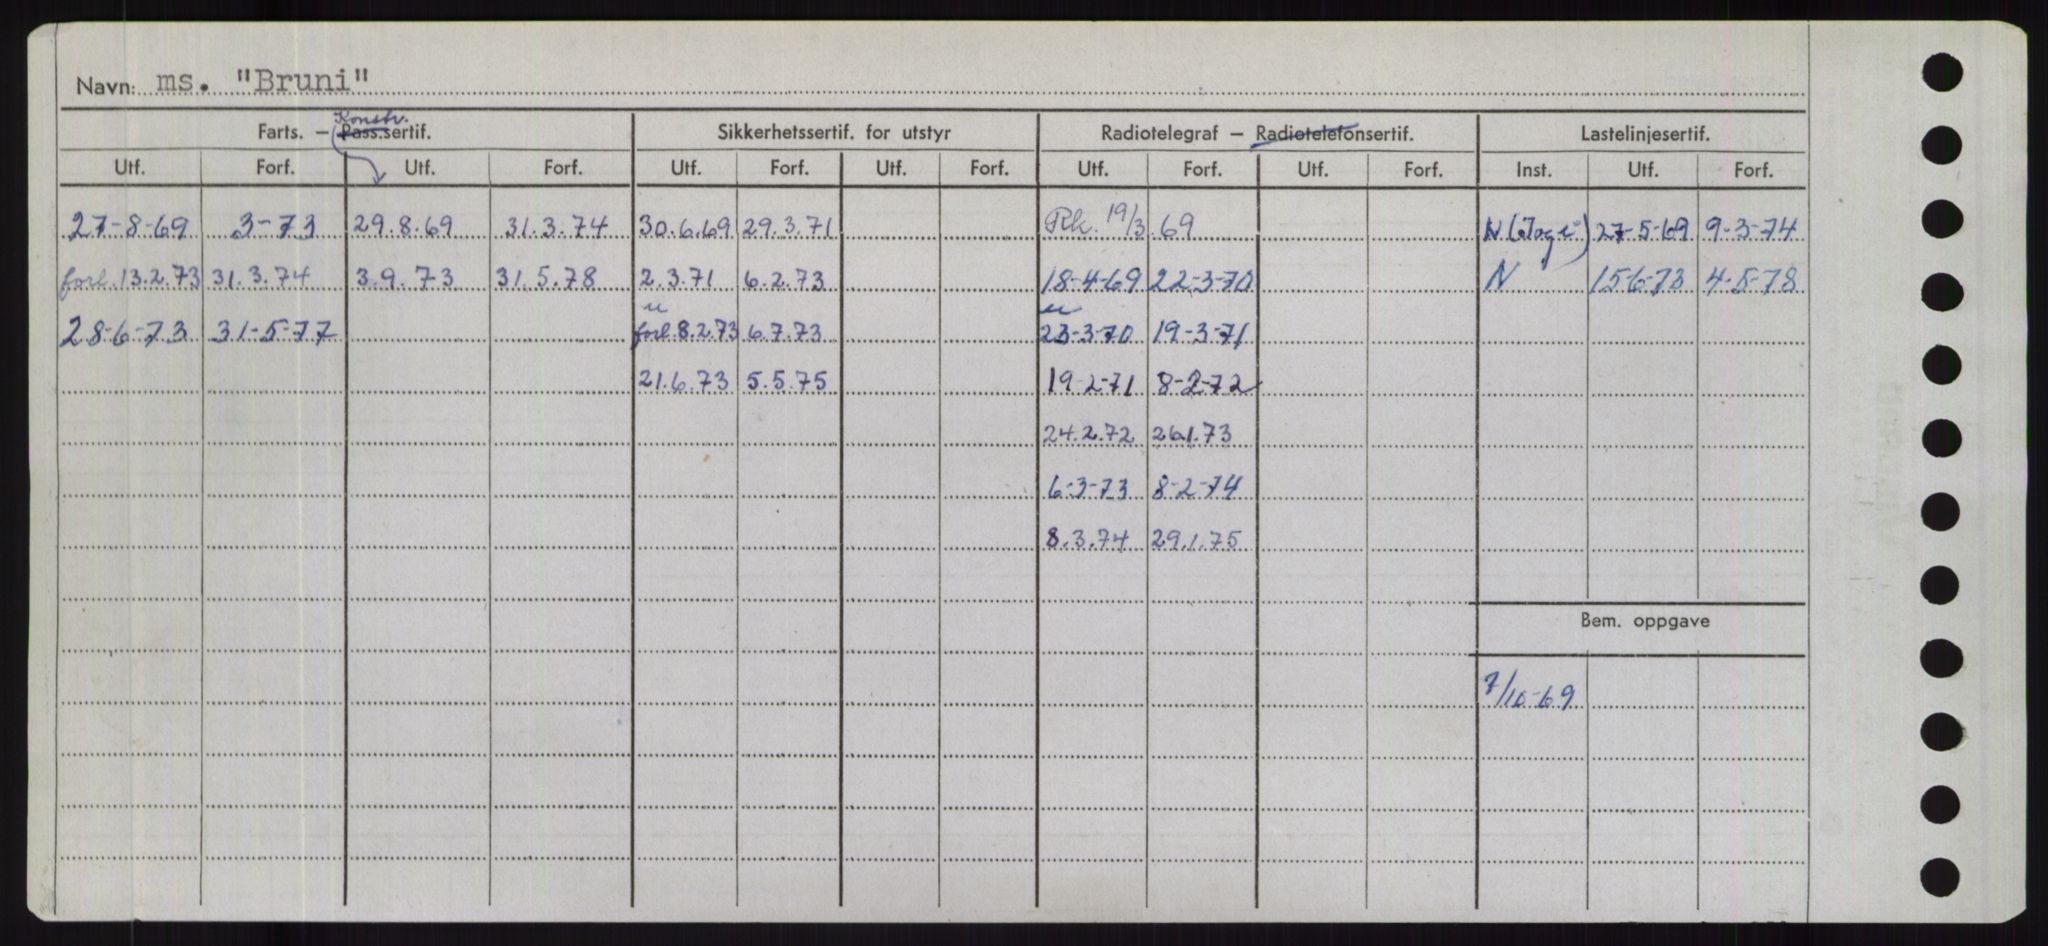 Navn: ms. "Bruni"
Konstr.
Farts. – Pass.sertif. Sikkerhetssertif. for utstyr Radiotelegraf – Radiotelefonsertif. Lastelinjesertif.
Utf. Forf. Utf. Forf. Utf. Forf. Utf. Forf. Utf. Forf. Utf. Forf. Inst. Utf. Forf.
27-8-69 3-73 29.8.69 31.3.74 30.6.69 29.3.71 Rk. 19/3 69 N 27-5-69 9-3-74
forl. 13.2.73 31.3.74 3.9.73 31.5.78 2.3.71 6.2.73 18-4-69 22-3-70 N 15-6-73 4-5-78
28-6-73 31-5-77 forl. 8.2.73 6.7.73 23-3-70 19-3-71
21.6.73 5.5.75 19-2-71 8-2-72
24.2.72 26.1.73
6-3-73 8-2-74
8.3.74 29.1.75
Bem. oppgave
7/10-69